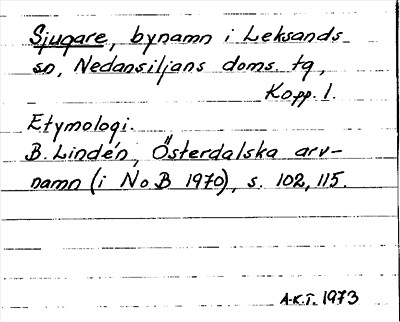 Sjugare, bynamn i Leksands
sn, Nedansiljans doms. tg,
Kopp. l.
Etymologi.
B. Lindén, Österdalska arv-
namn (i NoB 1970), s. 102, 115.
A-K.T. 1973